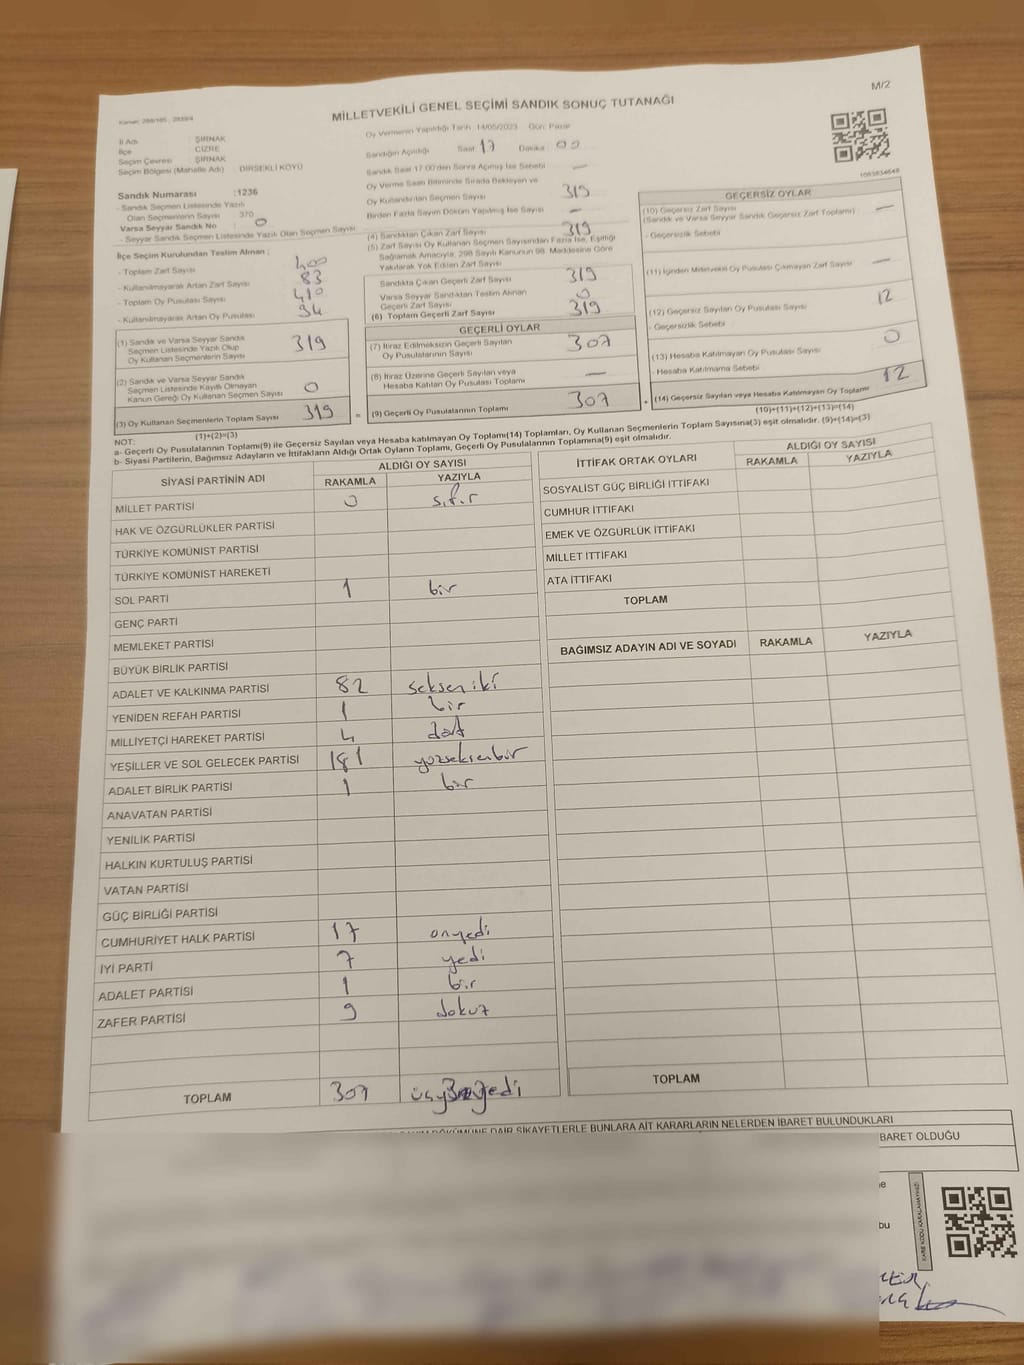 M/2
MİLLETVEKİLİ GENEL SEÇİMİ SANDIK SONUÇ TUTANAĞI
İl Adı : ŞIRNAK
İlçe : CİZRE
Seçim Çevresi : ŞIRNAK
Seçim Bölgesi (Mahalle Adı) : DİRSEKLİ KÖYÜ
Oy Vermenin Yapıldığı Tarih : 14/05/2023 Gün: Pazar
Sandığın Açıldığı Saat 17 Dakika : 00
Sandık Saat 17:00'den Sonra Açılmış İse Sebebi —
Oy Verme Saati Bitiminde Sırada Bekleyen ve
Oy Kullandırılan Seçmen Sayısı 319
Birden Fazla Sayım Döküm Yapılmış İse Sayısı —
Sandık Numarası : 1236
- Sandık Seçmen Listesinde Yazılı
Olan Seçmenlerin Sayısı 370
Varsa Seyyar Sandık No : 0
- Seyyar Sandık Seçmen Listesinde Yazılı Olan Seçmen Sayısı
İlçe Seçim Kurulundan Teslim Alınan ;
- Toplam Zarf Sayısı 400
- Kullanılmayarak Artan Zarf Sayısı 83
- Toplam Oy Pusulası Sayısı 410
- Kullanılmayarak Artan Oy Pusulası 94
(1) Sandık ve Varsa Seyyar Sandık
Seçmen Listesinde Yazılı Olup
Oy Kullanan Seçmenlerin Sayısı 319
(2) Sandık ve Varsa Seyyar Sandık
Seçmen Listesinde Kayıtlı Olmayan
Kanun Gereği Oy Kullanan Seçmen Sayısı 0
(3) Oy Kullanan Seçmenlerin Toplam Sayısı 319
(1)+(2)=(3)
(4) Sandıktan Çıkan Zarf Sayısı 319
(5) Zarf Sayısı Oy Kullanan Seçmen Sayısından Fazla İse, Eşitliği
Sağlamak Amacıyla; 298 Sayılı Kanunun 98. Maddesine Göre
Yakılarak Yok Edilen Zarf Sayısı
Sandıkta Çıkan Geçerli Zarf Sayısı 319
Varsa Seyyar Sandıktan Teslim Alınan
Geçerli Zarf Sayısı 0
(6) Toplam Geçerli Zarf Sayısı 319
GEÇERLİ OYLAR
(7) İtiraz Edilmeksizin Geçerli Sayılan
Oy Pusulalarının Sayısı 307
(8) İtiraz Üzerine Geçerli Sayılan veya
Hesaba Katılan Oy Pusulası Toplamı —
(9) Geçerli Oy Pusulalarının Toplamı 307
GEÇERSİZ OYLAR
(10) Geçersiz Zarf Sayısı —
(Sandık ve Varsa Seyyar Sandık Geçersiz Zarf Toplamı)
- Geçersizlik Sebebi
(11) İçinden Milletvekili Oy Pusulası Çıkmayan Zarf Sayısı —
(12) Geçersiz Sayılan Oy Pusulası Sayısı 12
- Geçersizlik Sebebi
(13) Hesaba Katılmayan Oy Pusulası Sayısı 0
- Hesaba Katılmama Sebebi
(14) Geçersiz Sayılan veya Hesaba Katılmayan Oy Toplamı 12
(10)+(11)+(12)+(13)=(14)
NOT:
a- Geçerli Oy Pusulaları Toplamı(9) ile Geçersiz Sayılan veya Hesaba katılmayan Oy Toplamı(14) Toplamları, Oy Kullanan Seçmenlerin Toplam Sayısına(3) eşit olmalıdır. (9)+(14)=(3)
b- Siyasi Partilerin, Bağımsız Adayların ve İttifakların Aldığı Ortak Oyların Toplamı, Geçerli Oy Pusulalarının Toplamına(9) eşit olmalıdır.
SİYASİ PARTİNİN ADI ALDIĞI OY SAYISI
RAKAMLA YAZIYLA
MİLLET PARTİSİ 0 sıfır
HAK VE ÖZGÜRLÜKLER PARTİSİ
TÜRKİYE KOMÜNİST PARTİSİ
TÜRKİYE KOMÜNİST HAREKETİ
SOL PARTİ 1 bir
GENÇ PARTİ
MEMLEKET PARTİSİ
BÜYÜK BİRLİK PARTİSİ
ADALET VE KALKINMA PARTİSİ 82 seksen iki
YENİDEN REFAH PARTİSİ 1 bir
MİLLİYETÇİ HAREKET PARTİSİ 4 dört
YEŞİLLER VE SOL GELECEK PARTİSİ 181 yüzseksenbir
ADALET BİRLİK PARTİSİ 1 bir
ANAVATAN PARTİSİ
YENİLİK PARTİSİ
HALKIN KURTULUŞ PARTİSİ
VATAN PARTİSİ
GÜÇ BİRLİĞİ PARTİSİ
CUMHURİYET HALK PARTİSİ 17 onyedi
İYİ PARTİ 7 yedi
ADALET PARTİSİ 1 bir
ZAFER PARTİSİ 9 dokuz
TOPLAM 307
İTTİFAK ORTAK OYLARI ALDIĞI OY SAYISI
RAKAMLA YAZIYLA
SOSYALİST GÜÇ BİRLİĞİ İTTİFAKI
CUMHUR İTTİFAKI
EMEK VE ÖZGÜRLÜK İTTİFAKI
MİLLET İTTİFAKI
ATA İTTİFAKI
TOPLAM
BAĞIMSIZ ADAYIN ADI VE SOYADI RAKAMLA YAZIYLA
TOPLAM
DÖKÜMÜNE DAİR ŞİKAYETLERLE BUNLARA AİT KARARLARIN NELERDEN İBARET BULUNDUKLARI
BARET OLDUĞU
bu
KARE KODU KARALAMAYINIZ!